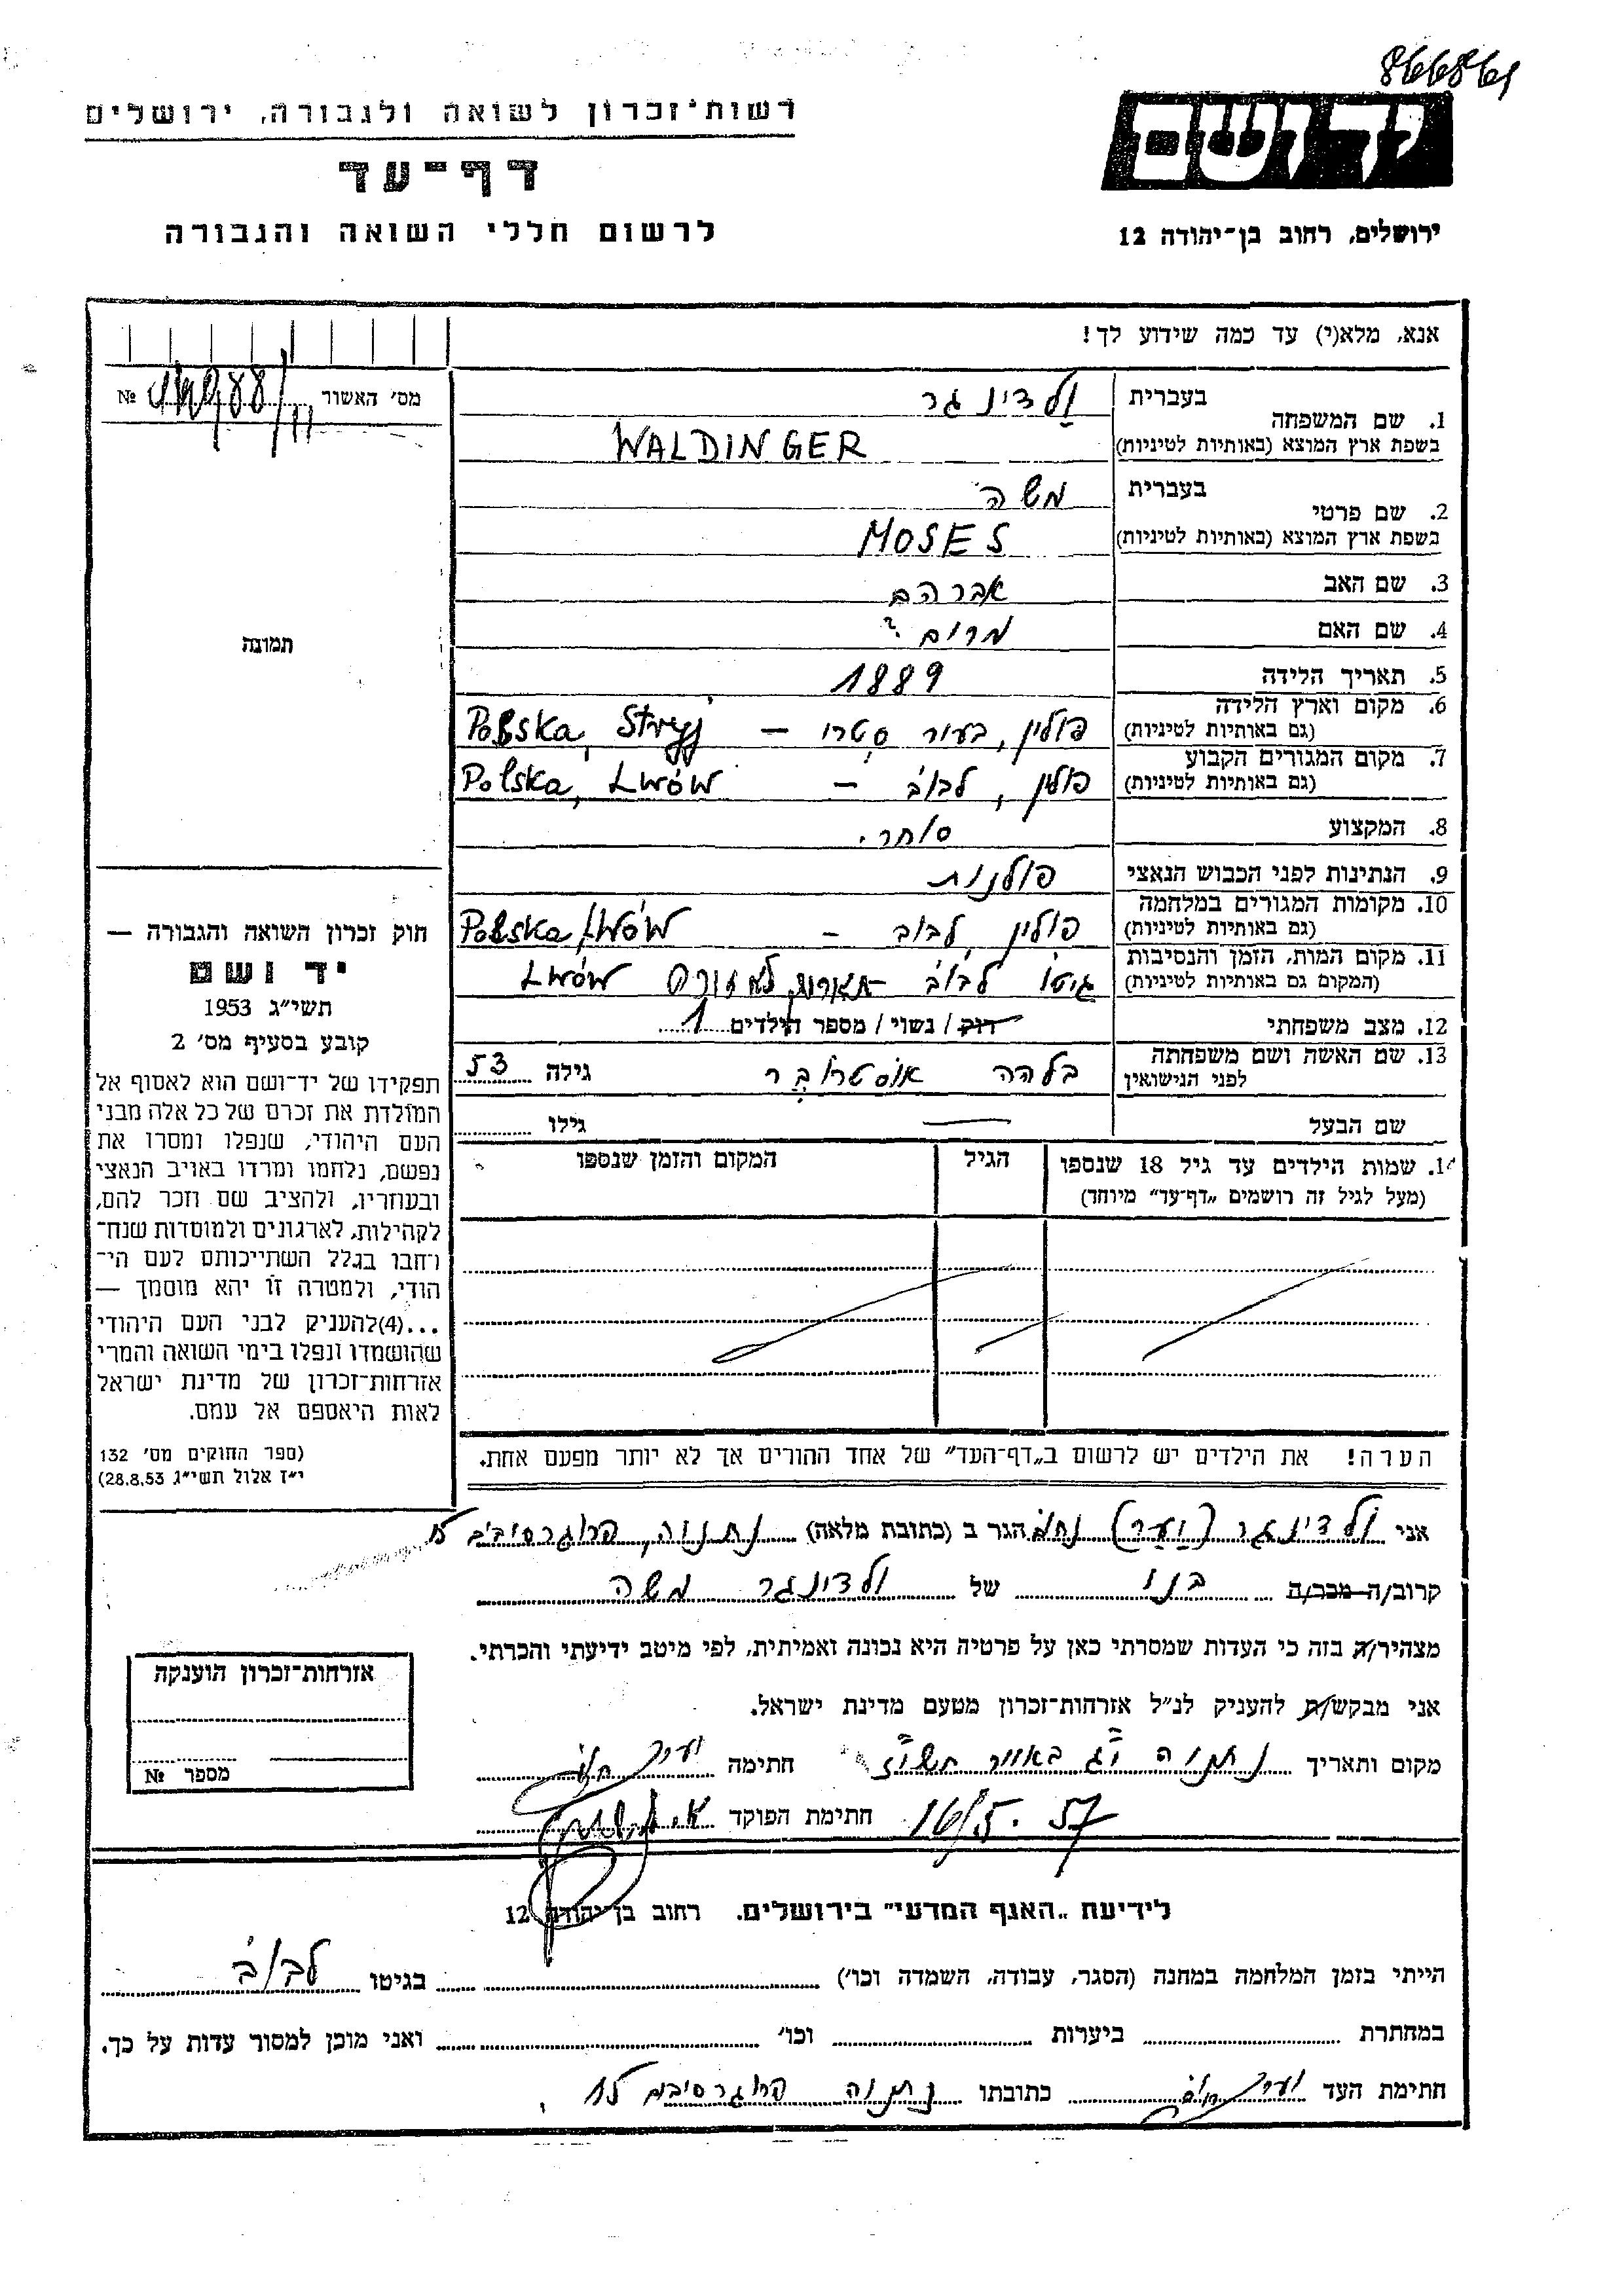 רשות-זכרון לשואה ולגבורה, ירושלים
דף-עד
לרשום חללי השואה והגבורה
יד ושם
ירושלים, רחוב בן-יהודה 12
אנא, מלא(י) עד כמה שידוע לך!
מס' האשור № 
1. שם המשפחה בעברית ולדינגר
בשפת ארץ המוצא (באותיות לטיניות) WALDINGER
2. שם פרטי בעברית משה
בשפת ארץ המוצא (באותיות לטיניות) MOSES
3. שם האב אברהם
4. שם האם מרים ?
5. תאריך הלידה 1889
6. מקום וארץ הלידה (גם באותיות לטיניות) פולין, בעיר סטרי – Polska, Stryj
7. מקום המגורים הקבוע (גם באותיות לטיניות) פולין, לבוב – Polska, Lwów
8. המקצוע סוחר.
9. הנתינות לפני הכבוש הנאצי פולנית
10. מקומות המגורים במלחמה (גם באותיות לטיניות) פולין, לבוב – Polska, Lwów
11. מקום המות, הזמן והנסיבות (המקום גם באותיות לטיניות) גיטו לבוב Lwów
12. מצב משפחתי רוק / נשוי / מספר הילדים 1
13. שם האשה ושם משפחתה לפני הנישואין בלהה גילה 53
שם הבעל — גילו
14. שמות הילדים עד גיל 18 שנספו (מעל לגיל זה רושמים „דף-עד" מיוחד) הגיל המקום והזמן שנספו
הערה! את הילדים יש לרשום ב„דף-העד" של אחד ההורים אך לא יותר מפעם אחת.
תמונה
חוק זכרון השואה והגבורה —
יד ושם
תשי"ג 1953
קובע בסעיף מס' 2
תפקידו של יד-ושם הוא לאסוף אל
המולדת את זכרם של כל אלה מבני
העם היהודי, שנפלו ומסרו את
נפשם, נלחמו ומרדו באויב הנאצי
ובעוזריו, ולהציב שם וזכר להם,
לקהילות, לארגונים ולמוסדות שנח-
רחבו בגלל השתייכותם לעם הי-
הודי, ולמטרה זו יהא מוסמך —
...(4)להעניק לבני העם היהודי
שהושמדו ונפלו בימי השואה והמרי
אזרחות-זכרון של מדינת ישראל
לאות היאספם אל עמם.
(ספר החוקים מס' 132
י"ז אלול תשי"ג 28.8.53)
אני ולדינגר (יער) הגר ב (כתובת מלאה) נתניה, פרוגרסיבים
קרוב/ה מכר/ה בנו של ולדינגר משה
מצהיר/ה בזה כי העדות שמסרתי כאן על פרטיה היא נכונה ואמיתית, לפי מיטב ידיעתי והכרתי.
אני מבקש/ת להעניק לנ"ל אזרחות-זכרון מטעם מדינת ישראל.
מקום ותאריך נתניה חתימה
16/5.57 חתימת הפוקד
אזרחות-זכרון הוענקה
מספר №
לידיעת „האגף המדעי" בירושלים. רחוב בן יהודה 12
הייתי בזמן המלחמה במחנה (הסגר, עבודה, השמדה וכו') בגיטו לבוב
במחתרת ביערות וכו' ואני מוכן למסור עדות על כך.
חתימת העד כתובתו נתניה פרוגרסיבים